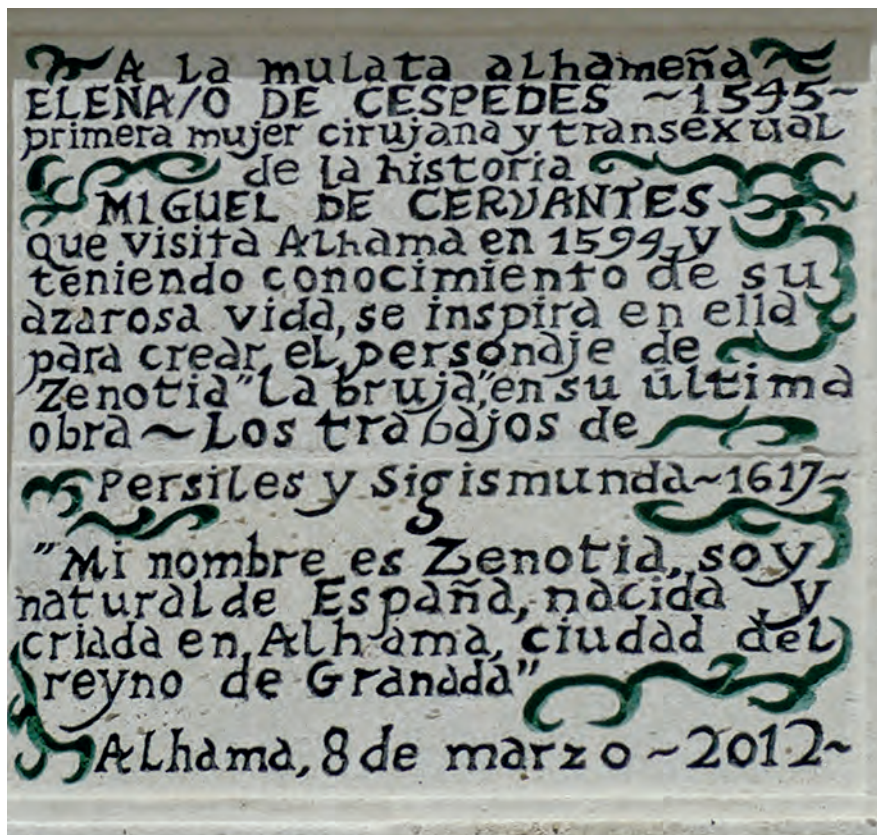 A La mulata alhameña
ELENA/O DE CESPEDES ~1545~
primera mujer cirujana y transexual
de la historia
MIGUEL DE CERVANTES
que visita Alhama en 1594, y
teniendo conocimiento de su
azarosa vida, se inspira en ella
para crear el personaje de
Zenotia "La bruja", en su última
obra ~ Los trabajos de
Persiles y Sigismunda ~1617~
"Mi nombre es Zenotia, soy
natural de España, nacida y
criada en Alhama, ciudad del
reyno de Granada"
Alhama, 8 de marzo ~2012~